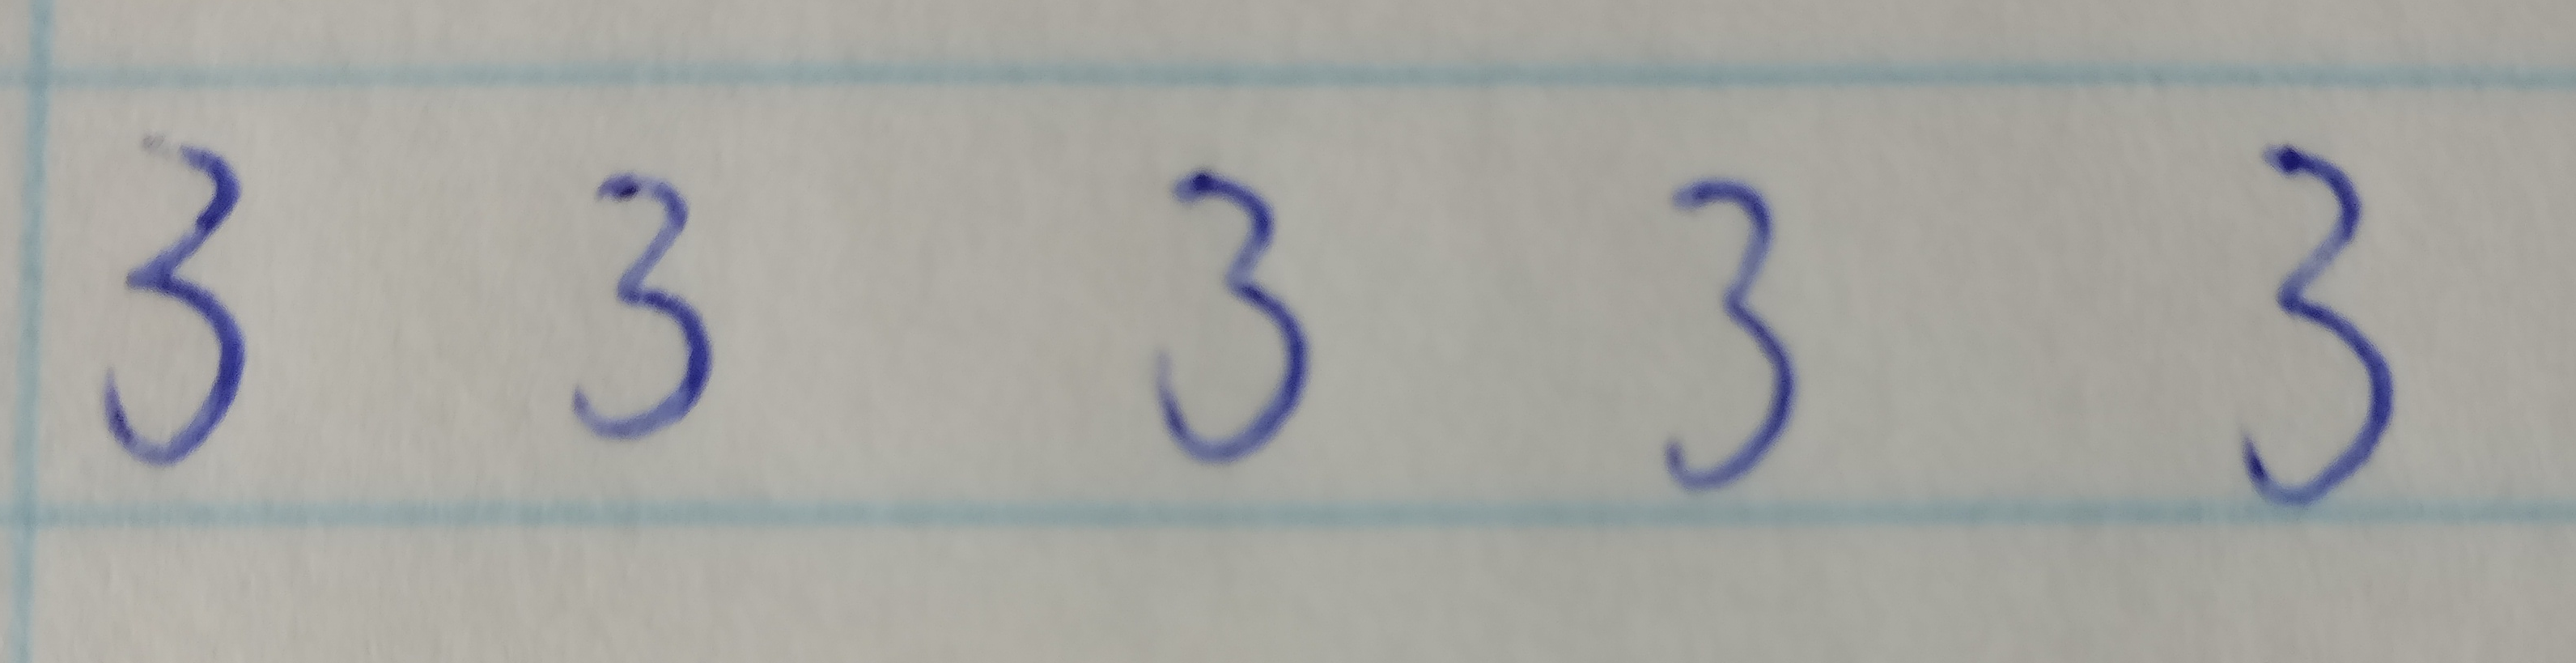 3 3 3 3 3